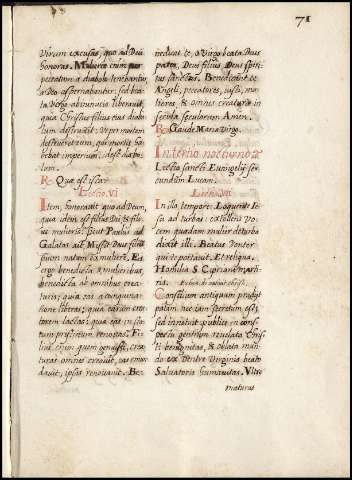 71
Virum excusas, quo ad Deū
honoras. Mulieres enim per
peccatum a diabolo tenebantur,
a Deo aspernabantur: sed bea
ta Virgo ab iniuncia liberauit,
quia Christus filius eius diabo
lum destruxit. Ut per mortem
destrueret eum, qui mortis ha
bebat imperium: idest diabo
lum.
R. Quæ est ista.
Lectio. vi
Item, honorauit quo ad Deum,
quia idem est filius Dei, & fili
us mulieris. Dicit Paulus ad
Galatas. Misit Deus filiū
suum natum ex muliere. Er
ergo benedicta a mulieribus,
benedicta ab omnibus crea
turis, quia eas a coinquina
tione liberas, quia earum crea
torem lactas, quia eas in sta
tum pristinum renouas. Fi
lius enim quem genuisti, crea
turas omnes creauit, eas emun
dauit, ipsas renouauit. Be
nedicat te, o Virgo beata, Deus
pater, Deus filius, Deus spiri
tus sanctus. Benedicant te
Angeli, peccatores, iusti, mu
lieres, & omnes creaturæ in
sæcula sæculorum. Amen.
R. Gaude Maria Virgo.
In tertio nocturno
Lectio sancti Euangelij se
cundum Lucam.
Lectio vii
In illo tempore: Loquente Ie
su ad turbas: extollens vo
cem quædam mulier de turba
dixit illi. Beatus venter
qui te portauit. Et reliqua.
Homilia S. Cipriani marti
ris.
Consilium antiquum prodijt
palam nec iam secretum est,
sed innotuit publice in con
spectu gentium reuelata Chris
ti benignitas, & oblata mun
do ex ventre Virginis beato
Saluatoris humanitas. Ultro
maturas